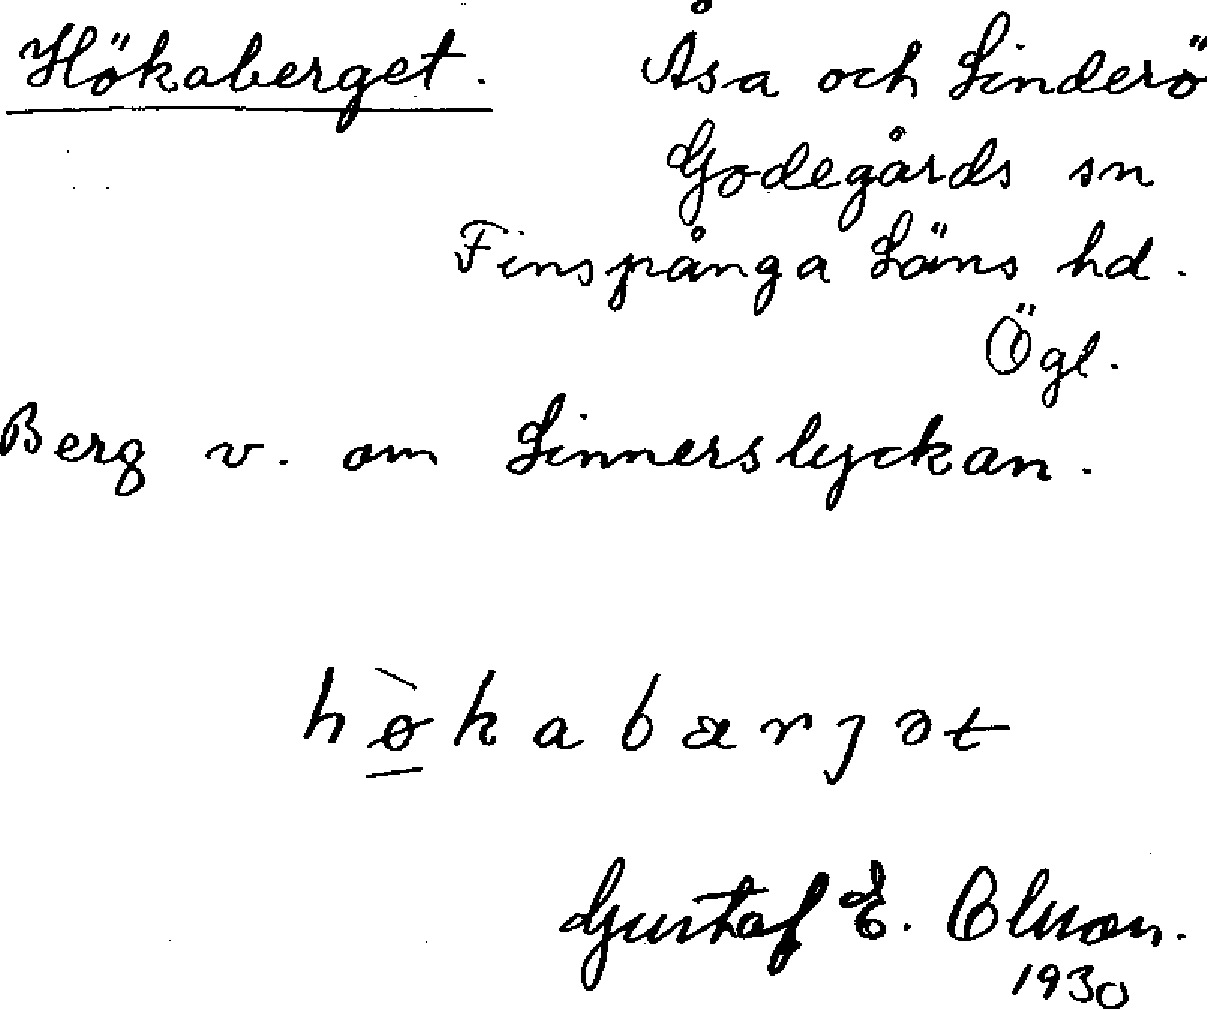 Hökaberget. Åsa och Linderö
Godegårds sn
Finspånga Läns hd.
Ögl.
Berg v. om Linnerslyckan.
hø̀kabærjət
Gustaf E. Olson.
1930